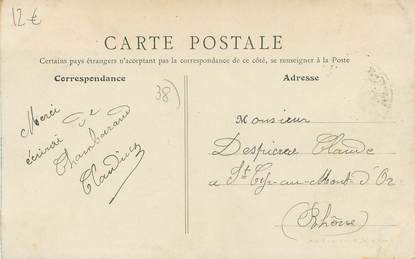 12€
CARTE POSTALE
Certains pays étrangers n'acceptant pas la correspondance de ce côté, se renseigner à la Poste
Correspondance
Adresse
38)
Merci
écrirai de
Chambarand
Claudius
Monsieur
Despierre Claude
a St Cyr-au-Mont-d'Or
(Rhône)